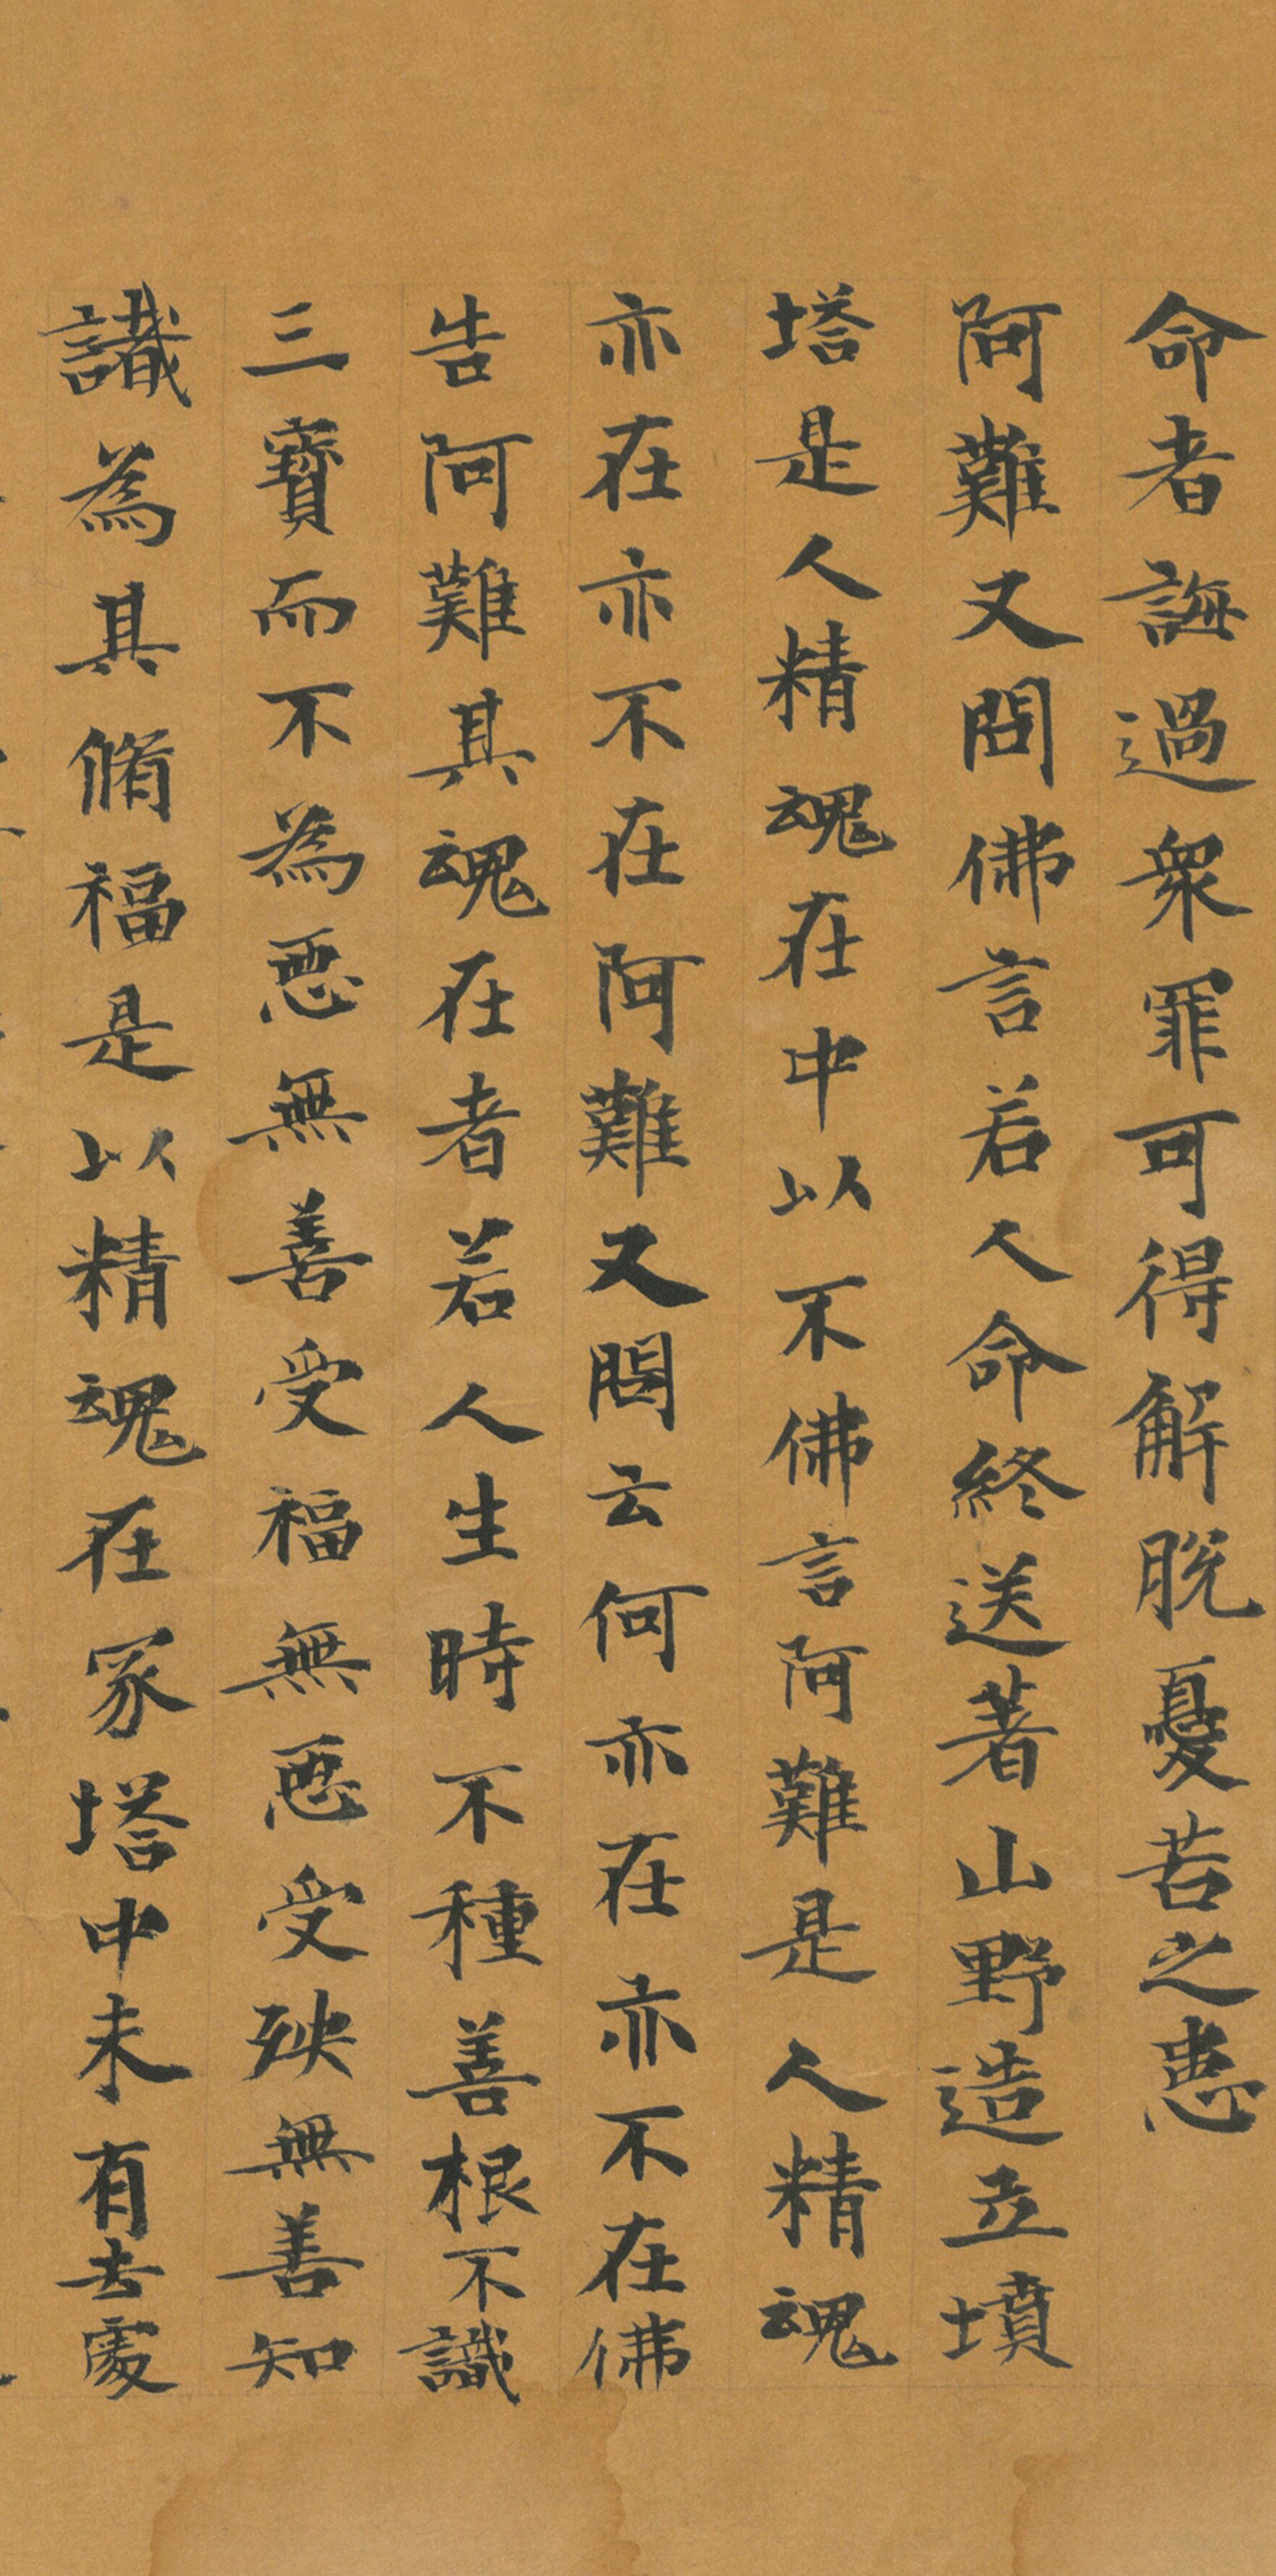 命者誨過衆罪可得解脱憂苦之患
阿難又問佛言若人命終送著山野造立墳
塔是人精魂在中以不佛言阿難是人精魂
亦在亦不在阿難又問云何亦在亦不在佛
告阿難其魂在者若人生時不種善根不識
三寶而不為惡無善受福無惡受殃無善知
識為其脩福是以精魂在冢塔中未有去處